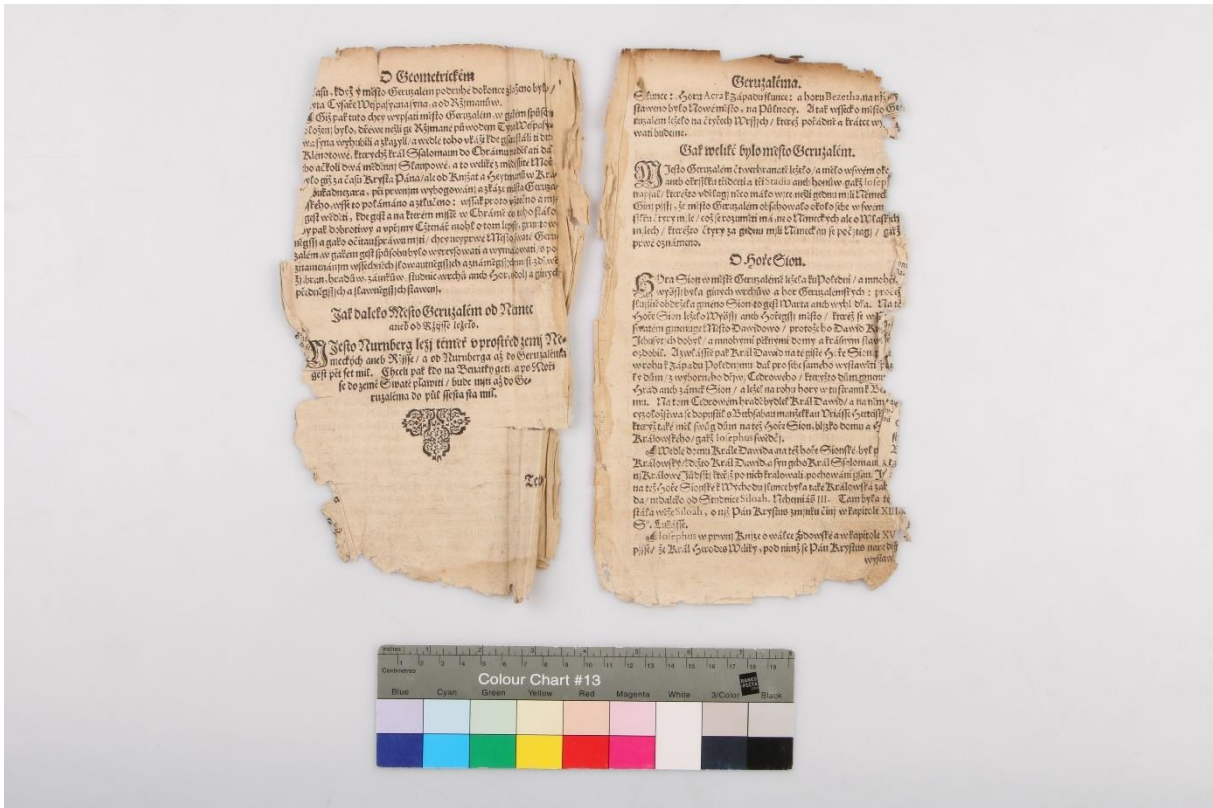 O Geometrickém
času, když město Geruzalém podruhé dokonce zbořeno bylo/
Tyta Cysaře Wespasyana syna, a od Ržijmanůw.
Giž pak tuto chcy wypsati město Geruzalém, w gakém způsobu
položení bylo, dřéwe nežli ge Ržijmané půwodem Tyta Wespasy-
wa syna wyhubili a zkazyli/ a wedle toho vkáži kde gsau stáli ti dwa
Klénotowé, kterychž král Ssalomaun do Chrámu nadělati dal
ačkoli dwa měděnij Slaupowé, a to weliké z mědi slité Moře
bylo giž za času Krysta Pána/ ale od Knijžat a Heytmanůw Krá-
Nabukadnezara, při prwnijm wybogowánij a zkáze města Geruza-
lémského, wsse to polámáno a ztlučeno: wssak proto vžitečno a mi-
gest wěděti, kde gest a na kterém mijstě w Chrámě co toho stálo
by pak dobrotiwý a vpřijmý Čžtenář mohl o tom lepssj, gruntow-
něgssj a gako očitau spráwu mijti/ chcy neyprwé Město swaté Geru-
zalém, w gakém gest způsobu bylo wyrysowati a wymalowati, s po-
znamenánijm wssechněch slowautněgssjch a známěgssjch mijst zdi, we-
žij, bran, hradůw, zámkůw, studnic, wrchů aneb Hor, vdolij a giných
předněgssjch a slawněgssjch stawenij.
Jak daleko Město Geruzalém od Nimec
aneb od Ržijsse leželo.
MJesto Nurnberg ležij téměř v prostřed zemij Ně-
meckých aneb Ržijsse/ a od Nurnberga až do Geruzaléma
gest pět set mil. Chceli pak kdo na Benatky geti, a po Moři
se do země Swaté plawiti/ bude mijti až do Ge-
ruzaléma do půl ssesta sta mil.
Teh
Geruzaléma.
Slunce: Horu Acra k Západu slunce: a horu Bezetha, na njž wy-
staweno bylo Nowé město, na Půlnocy. A tak wssecko město Ge-
ruzalém leželo na čtyřech Wrssjch/ kterěž pořádně a krátce wy-
wati budeme.
Gak weliké bylo město Geruzalém.
MJesto Geruzalém čtwerhranaté leželo/ a mělo w swém oko-
aneb okrssku třidceti a tři Stadia aneb honůw, gakž Ioseph
napsal/ kteréžto vdělagj něco málo wjce nežli gednu mjli Německ
Ginj pissj, že město Geruzalém obsahowalo około sebe w swém
ssku čtyry mjle/ což se rozuměti má, ne o Německých ale o Wlaských
mjlech/ kterěžto čtyry za gednu mjli Německau se počjtagj/ gakž
prwé oznámeno.
O Hoře Sion.
HOra Sion w městě Geruzalémě ležela ku Poledni/ a mnohem
wyšssj byla giných wrchůw a hor Geruzalemských: pročež
slussně obdržela gméno Sion, to gest Warta aneb wyhlídka. Na té
Hoře Sion leželo Wyšssj aneb Hořegssj město/ kteréž se w Pjsmě
swatém gmenuge Město Dawidowo/ protože ho Dawid K
Jebusytch dobyl/ a mnohými pěknými domy a krásným staw
ozdobil. A zwlásstě pak Král Dawid na té gisté Hoře Sion
w rohu k Západu Polednjmu dal pro sebe samého wystawěti p
ký dům/ z wýborného dřjwj Cedrowého/ kteryžto dům gmen
Hrad aneb zámek Sion/ a ležel na rohu hory w tu stranu k Be
mu. Na tom Cedrowém hradě bydlel Král Dawid/ a na něm
cyzoložstwa se dopustil s Bethsabau manželkau Vriásse Hetejssk
kterýž také měl swůg dům na též Hoře Sion, bljzko domu a H
Králowského/ gakž Iosephus swědčj.
Wedle domu Krále Dawida, na též hoře Sionské byl p
Králowský/ kdežto Král Dawid, a syn geho Král Ssalomaun, a ga
nj Králowé Jůdsstj, kteřjž po nich kralowali, pochowáni gsau.
na též Hoře Sionské k Wýchodu slunce byla také Králowská zah
da/ nedaleko od Studnice Siloah. Nehemiáš III. Tam byla té
stála wěže Siloah, o nijž Pán Krystus zmjnku činj w kapitole XIII.
S°. Lukásse.
Iosephus w prwnj Knize o wálce Židowské a w kapitole XV
pjsse/ že Král Herodes Weliký, pod nimž se Pán Krystus narodil
wystaw
Inches
Centimetres
Colour Chart #13
Blue Cyan Green Yellow Red Magenta White 3/Color Black
DANES PICTA